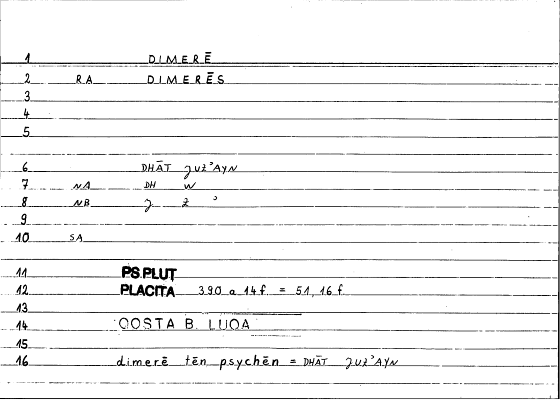 1 DIMERĒ
2 RA DIMERĒS
3
4
5
6 DHĀT ǧUZʾAYN
7 NA DH W
8 NB ǧ Z ʾ
9
10 SA
11 PS.PLUT
12 PLACITA 390 a 14 f. = 51, 16 f.
13
14 QOSTA B. LUQA
15
16 dimerē tēn psychēn = DHĀT ǧUZʾAYN